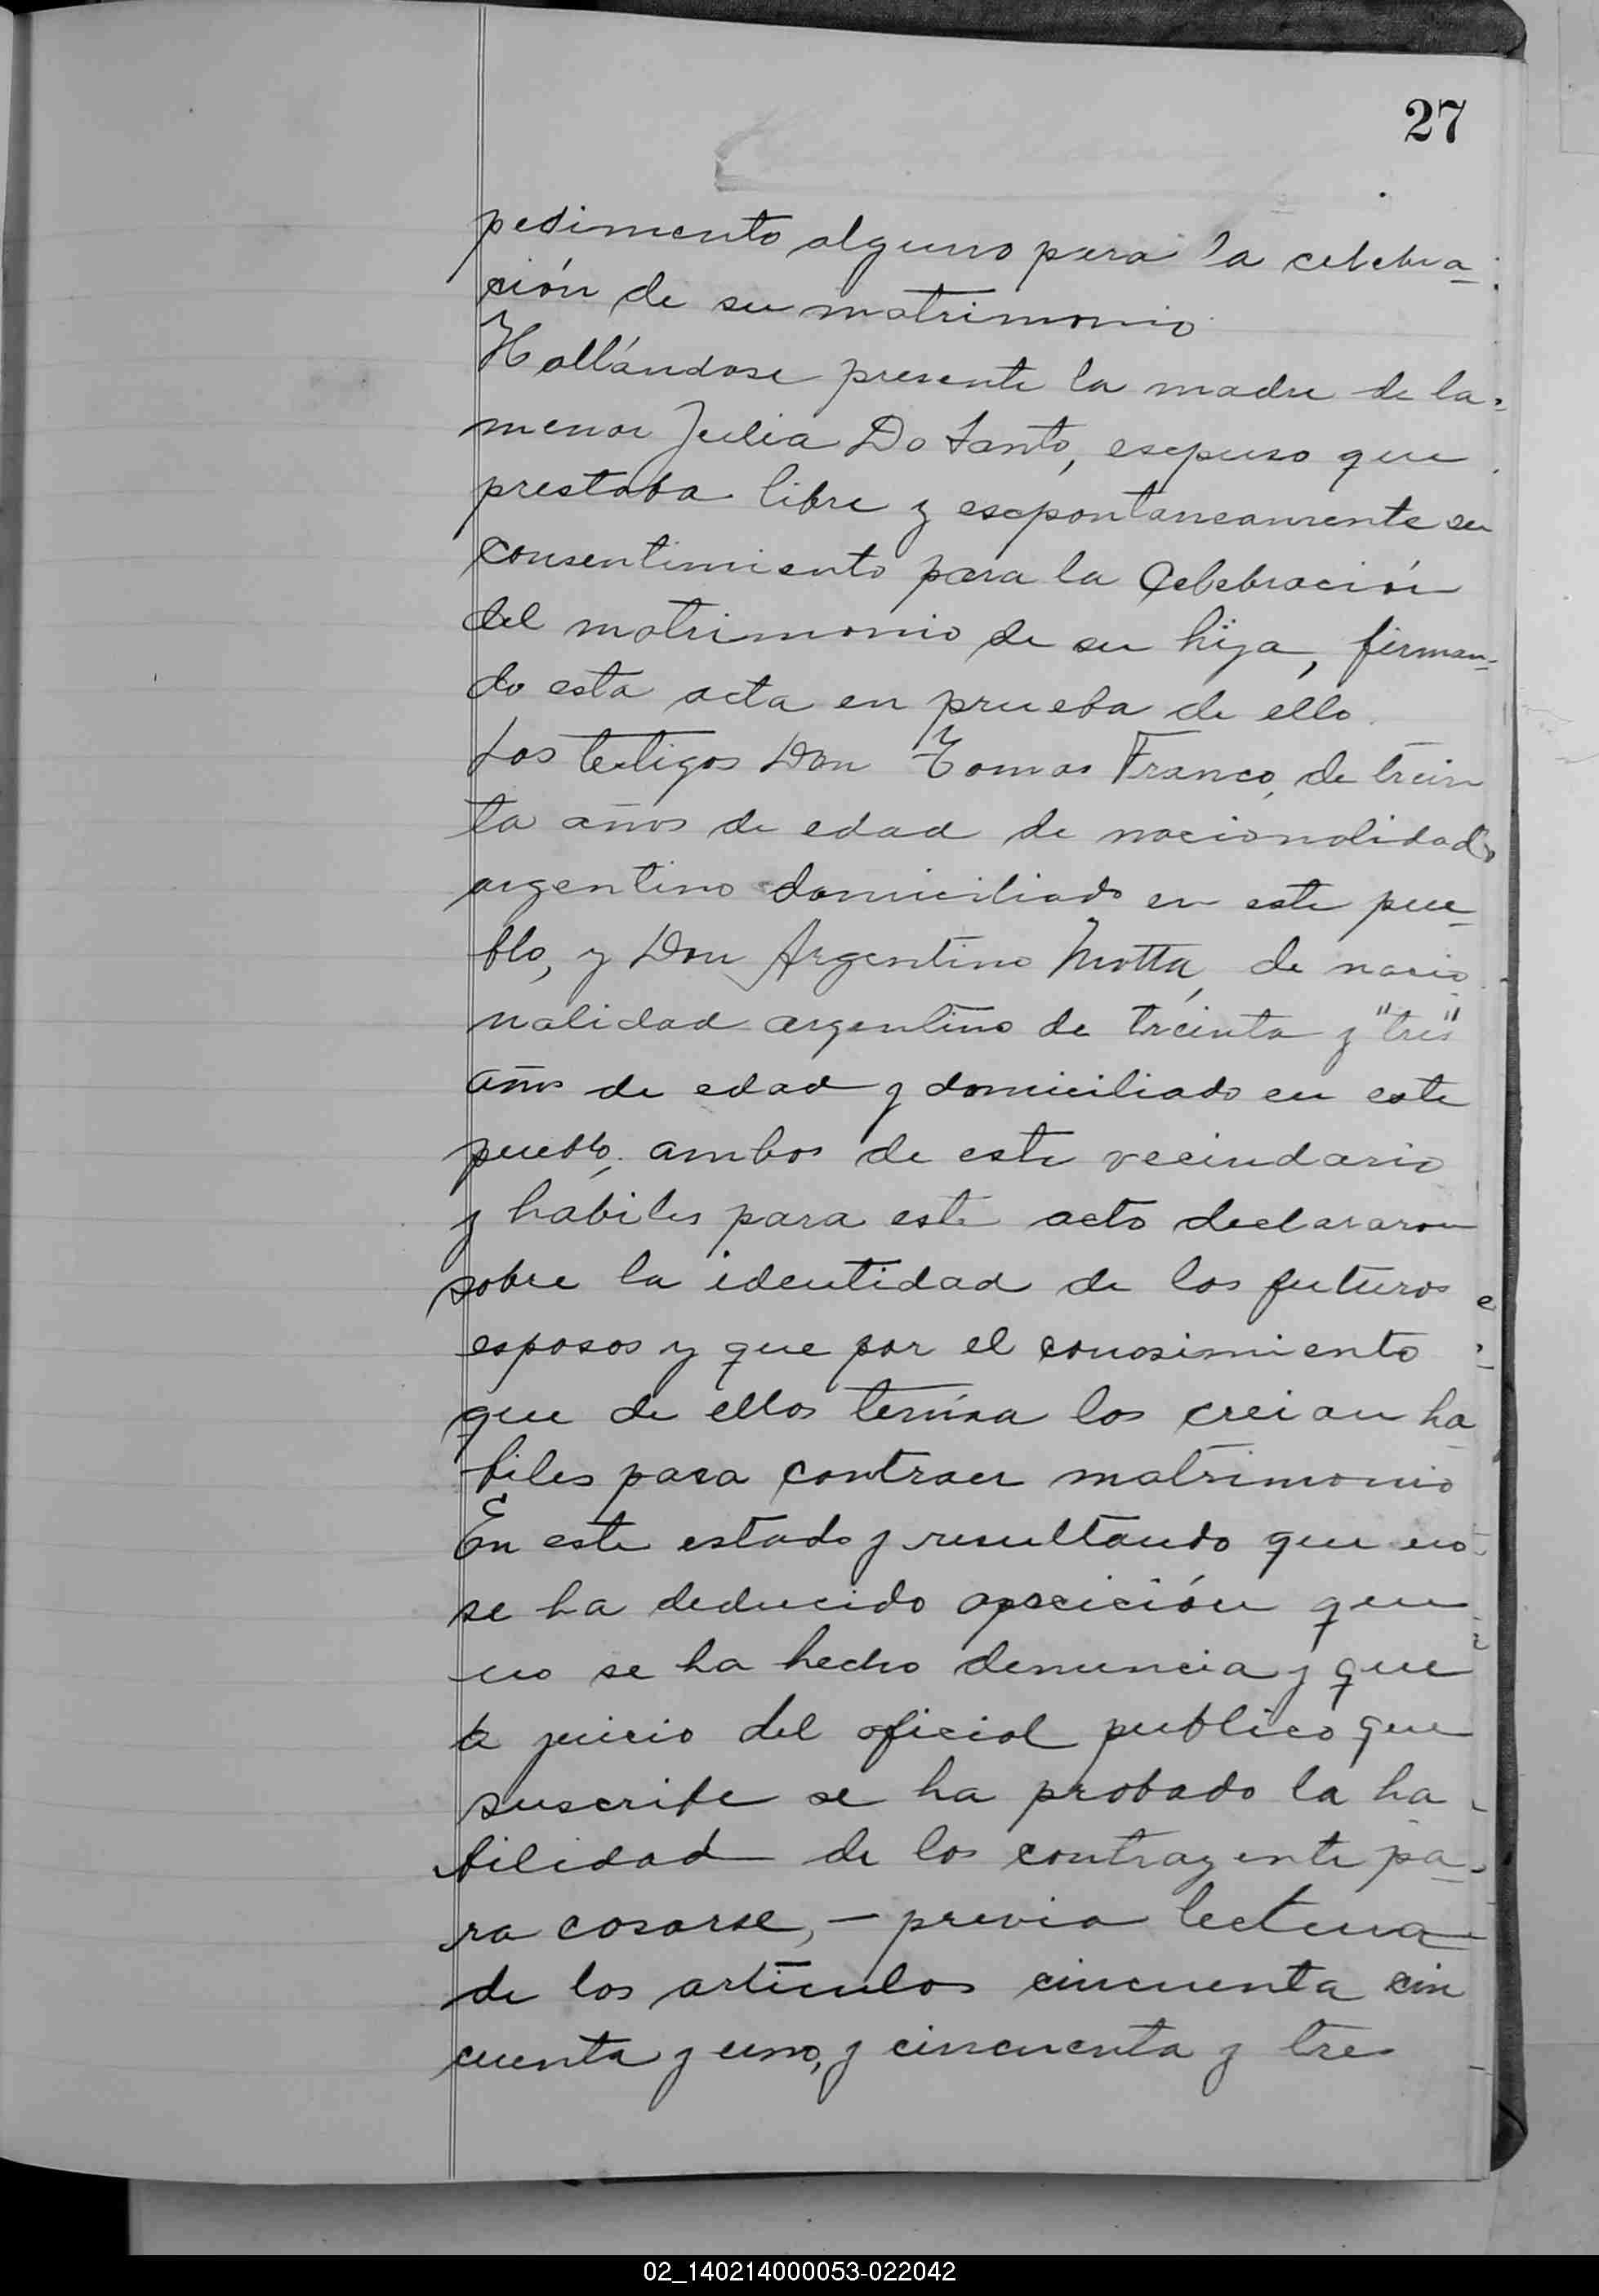 27
pedimento alguno para la celebra-
ción de su matrimonio
Hallándose presente la madre de la
menor Julia Do Santo, esepuso que
prestaba libre y esepontaneamente su
consentimiento para la Celebración
del matrimonio de su hija, firman-
do esta acta en prueba de ello.
Los testigos Don Tomas Franco, de trein
ta años de edad de nacionalidad
argentino domiciliado en este pue-
blo, y Don Argentino Motta, de nacio
nalidad argentino de treinta y "tres"
años de edad y domiciliado en este
pueblo, ambos de este vecindario
y hábiles para este acto declararon
sobre la identidad de los futuros
esposos y que por el conosimiento
que de ellos teniaa los creian ha-
biles para contraer matrimonio
En este estado y resultando que no
se ha deducido oposición que
no se ha hecho denuncia y que
a juicio del oficial publico que
suscribe se ha probado la ha
bilidad de los contrayente pa-
ra casarse, — previa lectura
de los artículos cincuenta cin
cuenta y uno, y cincuenta y tres
02_140214000053-022042